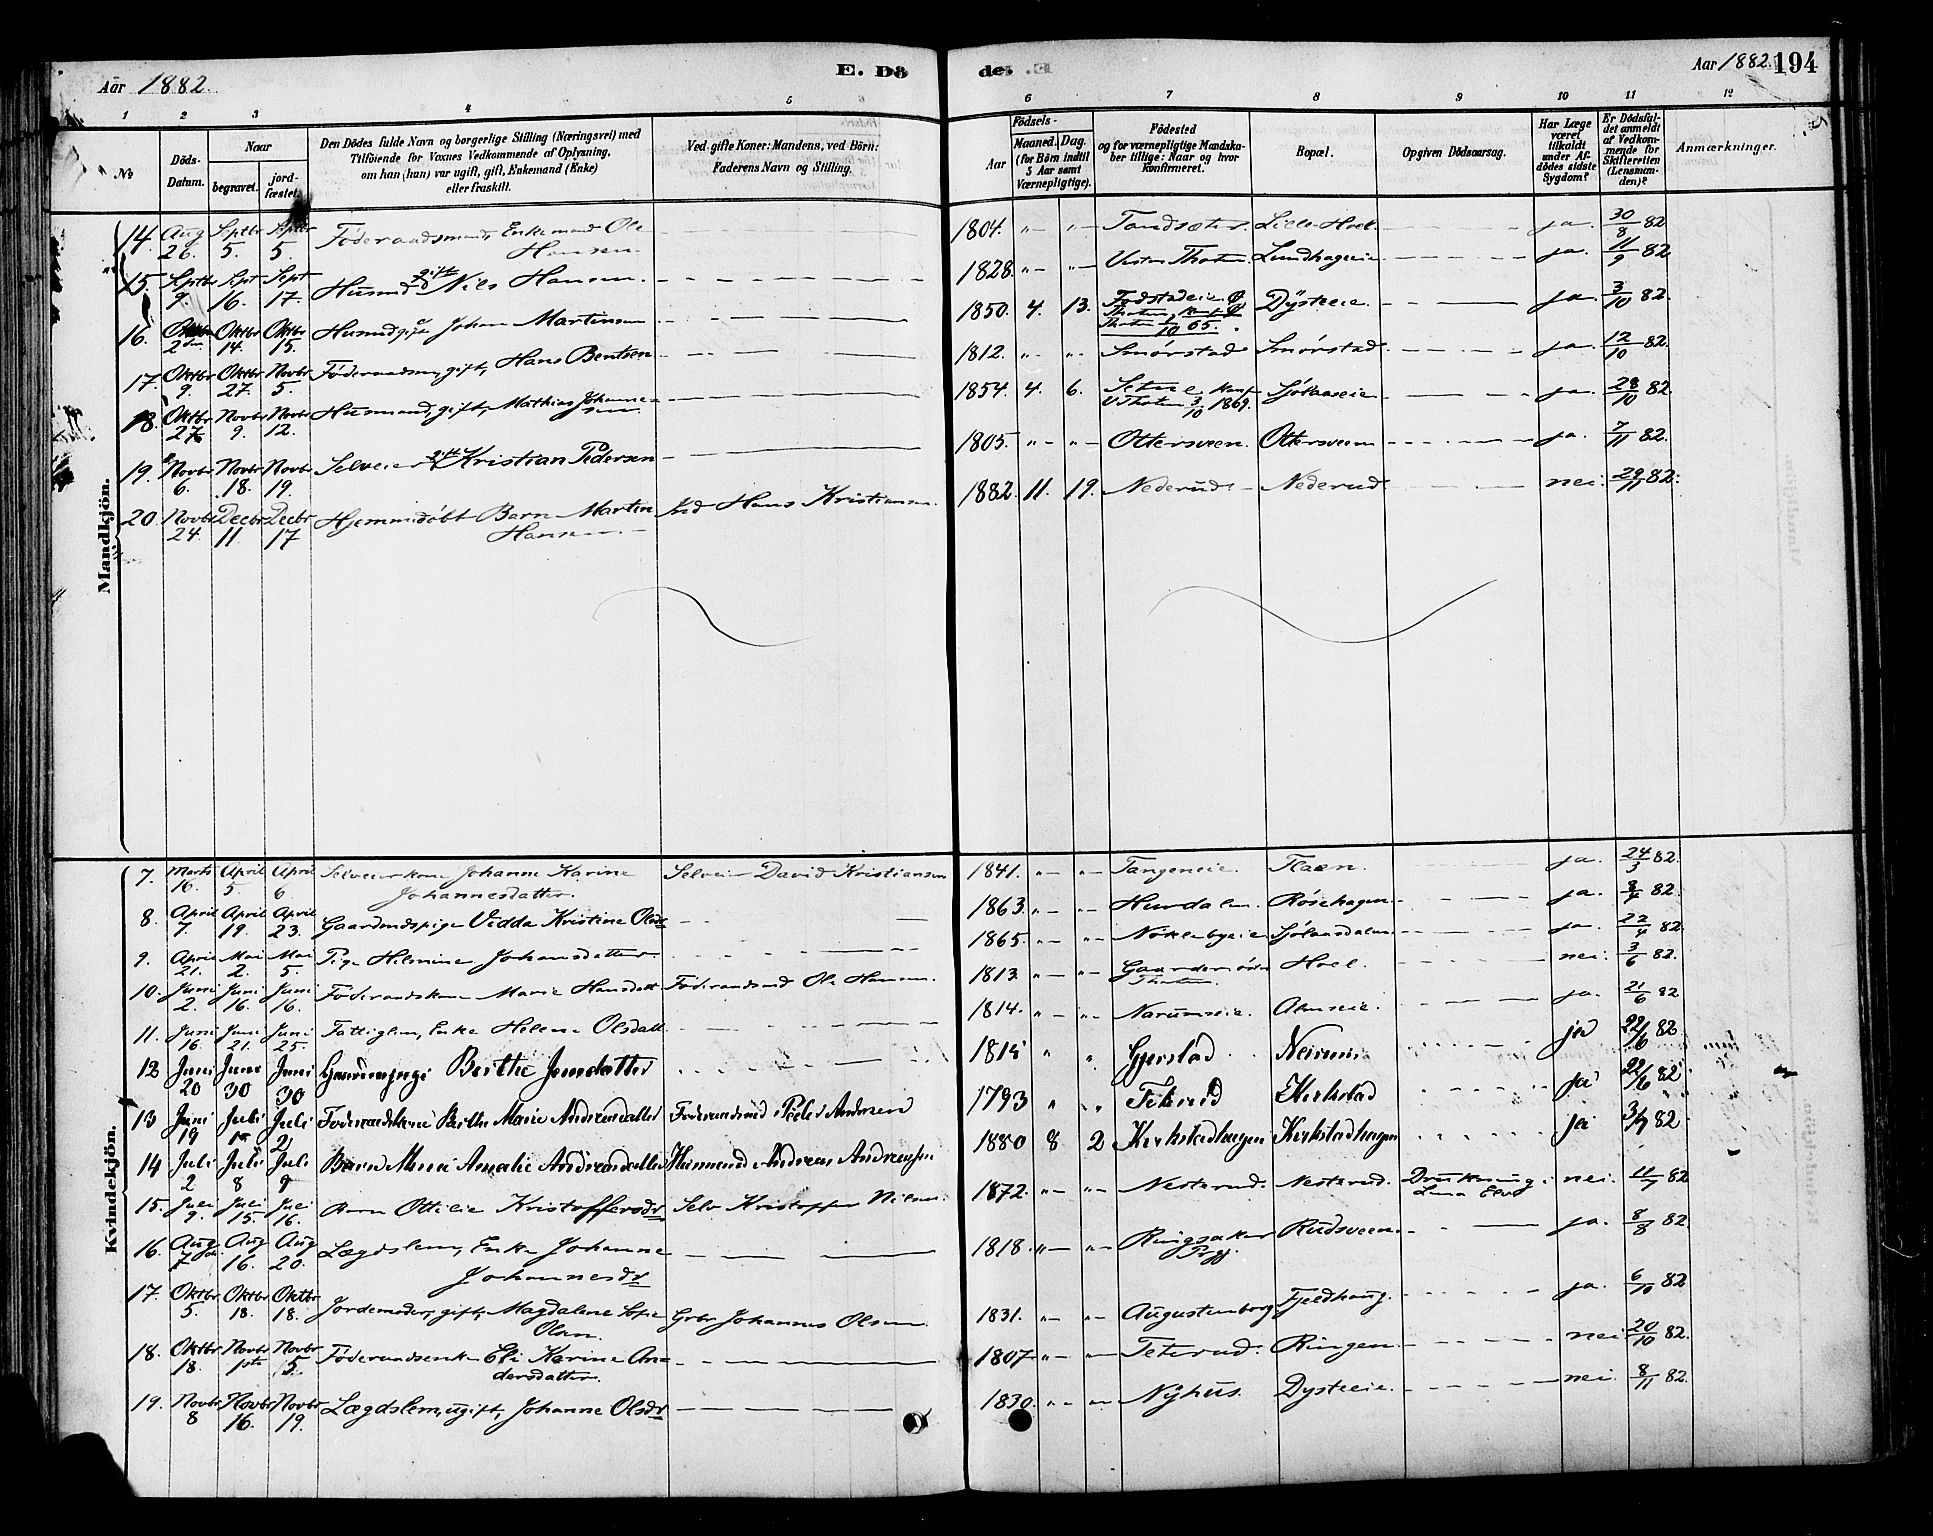 Aar 1882.
E. Dö
de.
Aar 1882.
194
1 2 3 4 5 6 7 8 9 10 11 12
No
Döds-Datum.
Naar
begravet.
jord-fæstet.
Den Dödes fulde Navn og borgerlige Stilling (Næringsvei) med
Tilföiende for Voxnes Vedkommende af Oplysning,
om han (hun) var ugift, gift, Enkemand (Enke)
eller fraskilt.
Ved gifte Koner: Mandens, ved Börn:
Faderens Navn og Stilling.
Födsels-
Aar
Maaned. Dag.
(for Börn indtil
5 Aar samt
Værnepligtige).
Födested
og for værnepligtige Mandska-
ber tillige: Naar og hvor
Konfirmeret.
Bopæl.
Opgiven Dödsaarsag.
Har Læge
været
tilkaldt
under Af-
dödes sidste
Sygdom?
Er Dödsfal-
det anmeldt
af Vedkom-
mende for
Skifteretten
(Lensman-
den)?
Anmærkninger.
Mandkjön.
14. Aug 26. Septbr 5. Septbr 5. Föderaadsmand, Enkemand Ole Hansen 1804. Lille Hoel. ja. 30/8 82
15. Septbr 9. Sept 16. Sept 17. Husmd gift Nils Hansen. 1828. Vestre Thoten Lundhageeie ja. 11/9 82
16. Oktbr 2den Oktbr 14. Oktbr 15. Husmd gift Johan Martinsen 1850. 4. 13. Fodstadeie Ø Thoten, Konf Ø Thoten 1/10 65. Dysteeie. ja 3/10 82.
17. Oktbr 9. Oktbr 27. Novbr 5. Föderaadsm, gift, Hans Bentsen 1812. Smörstad Smörstad ja. 12/10 82.
18. Oktbr 27. Novbr 9. Novbr 12. Husmand, gift, Mathias Johanne-sen 1854. 4. 6. Konf V Thoten 3/10 1869. ja. 28/10 82.
19. Novbr 6. Novbr 18. Novbr 19. Selveier gift Kristian Pedersen 1805. Ottersveen. Ottersveen ja. 7/11 82.
20. Novbr 24. Decbr 11. Decbr 17 Hjemmedöbt Barn Martin Hansen. Hans Kristiansen. 1882. 11. 19. Nederud Nederud nei. 29/11 82.
Kvindekjön.
7. Marts 16. April 5. April 6 Selveierkone Johanne Karine Johannesdatter. Selveier David Kristiansen 1841. Tangeneie. Flaen. ja. 24/3 82.
8. April 7. April 19. April 23. Gaardmdspige Vedda Kristine Olsdtr 1863. Hurdalen Rösehagen ja. 8/4 82.
9. April 21. Mai 2. Mai 5. Pige Helmine Johansdatter 1865. Nöklebyeie Sjölansdalen ja. 22/4 82.
10. Juni 2. Juni 16. Juni 16. Föderaadskone Marie Hansdatt Föderaadsmd Ole Hansen. 1813. Thoten. Hoel. nei. 3/6 82.
11. Juni 16. Juni 21. Juni 25. Fattiglem, Enke Helene Olsdatt 1814. Narumseie. Almseie. ja. 21/6 82
12 Juni 20 Juni 30 Juni 30 Gaardmpige Berthe Jensdatter Gjerstad ja 22/6 82
13 Juni 19 Juli Juli 2 Föderaadskone Berthe Marie Andersdatter Föderaadsmd Peder Andersen 1793 Kirkstad ja 22/6 82
14 Juli 2 Juli 8 Juli 9 Barn Mina Amalie Andreasdatter Husmand Andreas Andreassen 1880 8 2 Kirkstadhagen Kirkstadhagen ja 3/7 82
15. Juli 9. Juli 15. Juli 16. Barn Ottilie Kristoffersdr Selv Kristoffer Nilsen 1872. Nesterud. Nesterud. Drukning i Lena Elv nei. 11/7 82
16. Aug 7 Aug 16. Aug 20. Lægdslem, Enke Johanne Johannesdr 1818. Ringsaker Prgj. Rudsveen ja. 8/8 82
17. Oktbr 5. Oktbr 18. Oktbr 18. Jordemoder, gift, Magdalene Sofie Olsen. Grbr Johannes Olsen 1831. Augustenborg Fjeldhaug. ja. 6/10 82
18. Oktbr 18. Novbr 1ste Novbr 5. Föderaadsenke Eli Karine An-dersdatter. 1807. Teterud. Ringen nei. 20/10 82.
19. Novbr 8 Novbr 16. Novbr 19. Lægdslem, ugift, Johanne Olsdr 1830. Nyhus. Dysteeie. nei. 8/11 82.